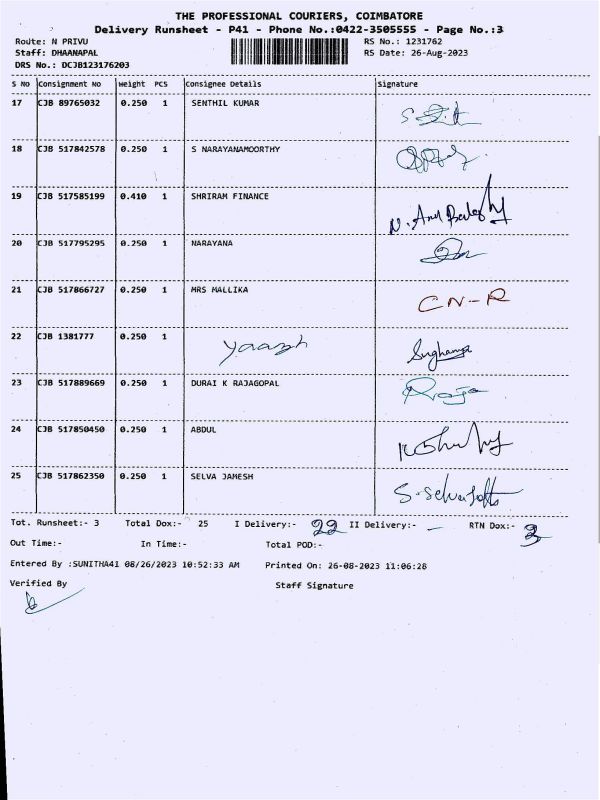 THE PROFESSIONAL COURIERS, COIMBATORE
Delivery Runsheet - P41 - Phone No.:0422-3505555 - Page No.:3
Route: N PRIVU RS No.: 1231762
Staff: DHAANAPAL RS Date: 26-Aug-2023
DRS No.: DCJB123176203
S No Consignment No Weight PCS Consignee Details Signature
17 CJB 89765032 0.250 1 SENTHIL KUMAR
18 CJB 517842578 0.250 1 S NARAYANAMOORTHY
19 CJB 517585199 0.410 1 SHRIRAM FINANCE
20 CJB 517795295 0.250 1 NARAYANA
21 CJB 517866727 0.250 1 MRS MALLIKA CN-R
22 CJB 1381777 0.250 1 yaazh
23 CJB 517889669 0.250 1 DURAI K RAJAGOPAL Raja
24 CJB 517850450 0.250 1 ABDUL
25 CJB 517862350 0.250 1 SELVA JAMESH
Tot. Runsheet:- 3 Total Dox:- 25 I Delivery:- 22 II Delivery:- - RTN Dox:- 3
Out Time:- In Time:- Total POD:-
Entered By :SUNITHA41 08/26/2023 10:52:33 AM Printed On: 26-08-2023 11:06:28
Verified By Staff Signature